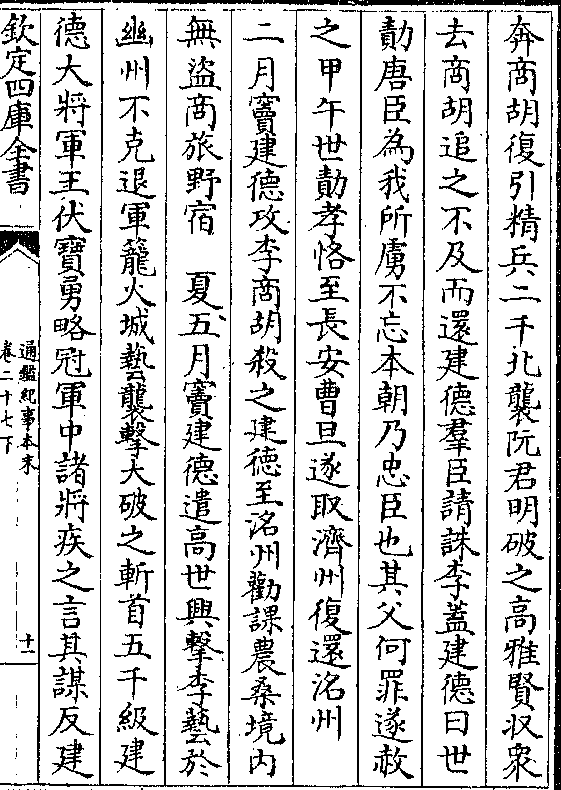 奔商胡復引精兵二千北襲阮君明破之高雅賢収衆
去商胡追之不及而還建德羣臣請誅李蓋建德曰世
勣唐臣為我所虜不忘本朝乃忠臣也其父何罪遂赦
之甲午世勣孝恪至長安曹旦遂取濟州復還洺州
二月竇建德攻李商胡殺之建德至洺州勸課農桑境内
無盜商旅野宿　夏五月竇建德遣高世興擊李藝於
幽州不克退軍籠火城藝襲擊大破之斬首五千級建
德大將軍王伏寶勇略冠軍中諸將疾之言其謀反建
欽定四庫全書
通鑑紀事本末
卷二十七下
十一